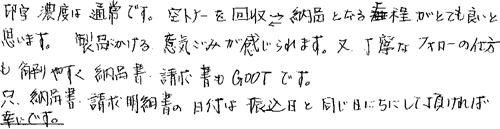 印字濃度は通常です。空トナーを回収⇄納品となる垂程がとても良いと
思います。製品がける意気ごみが感じられます。又、丁寧なフォローの仕方
も解りやすく納品書・請求書もGOODTです。
只、納品書・請求明細書の日付は振込日と同じ日にちにして頂ければ
幸いです。